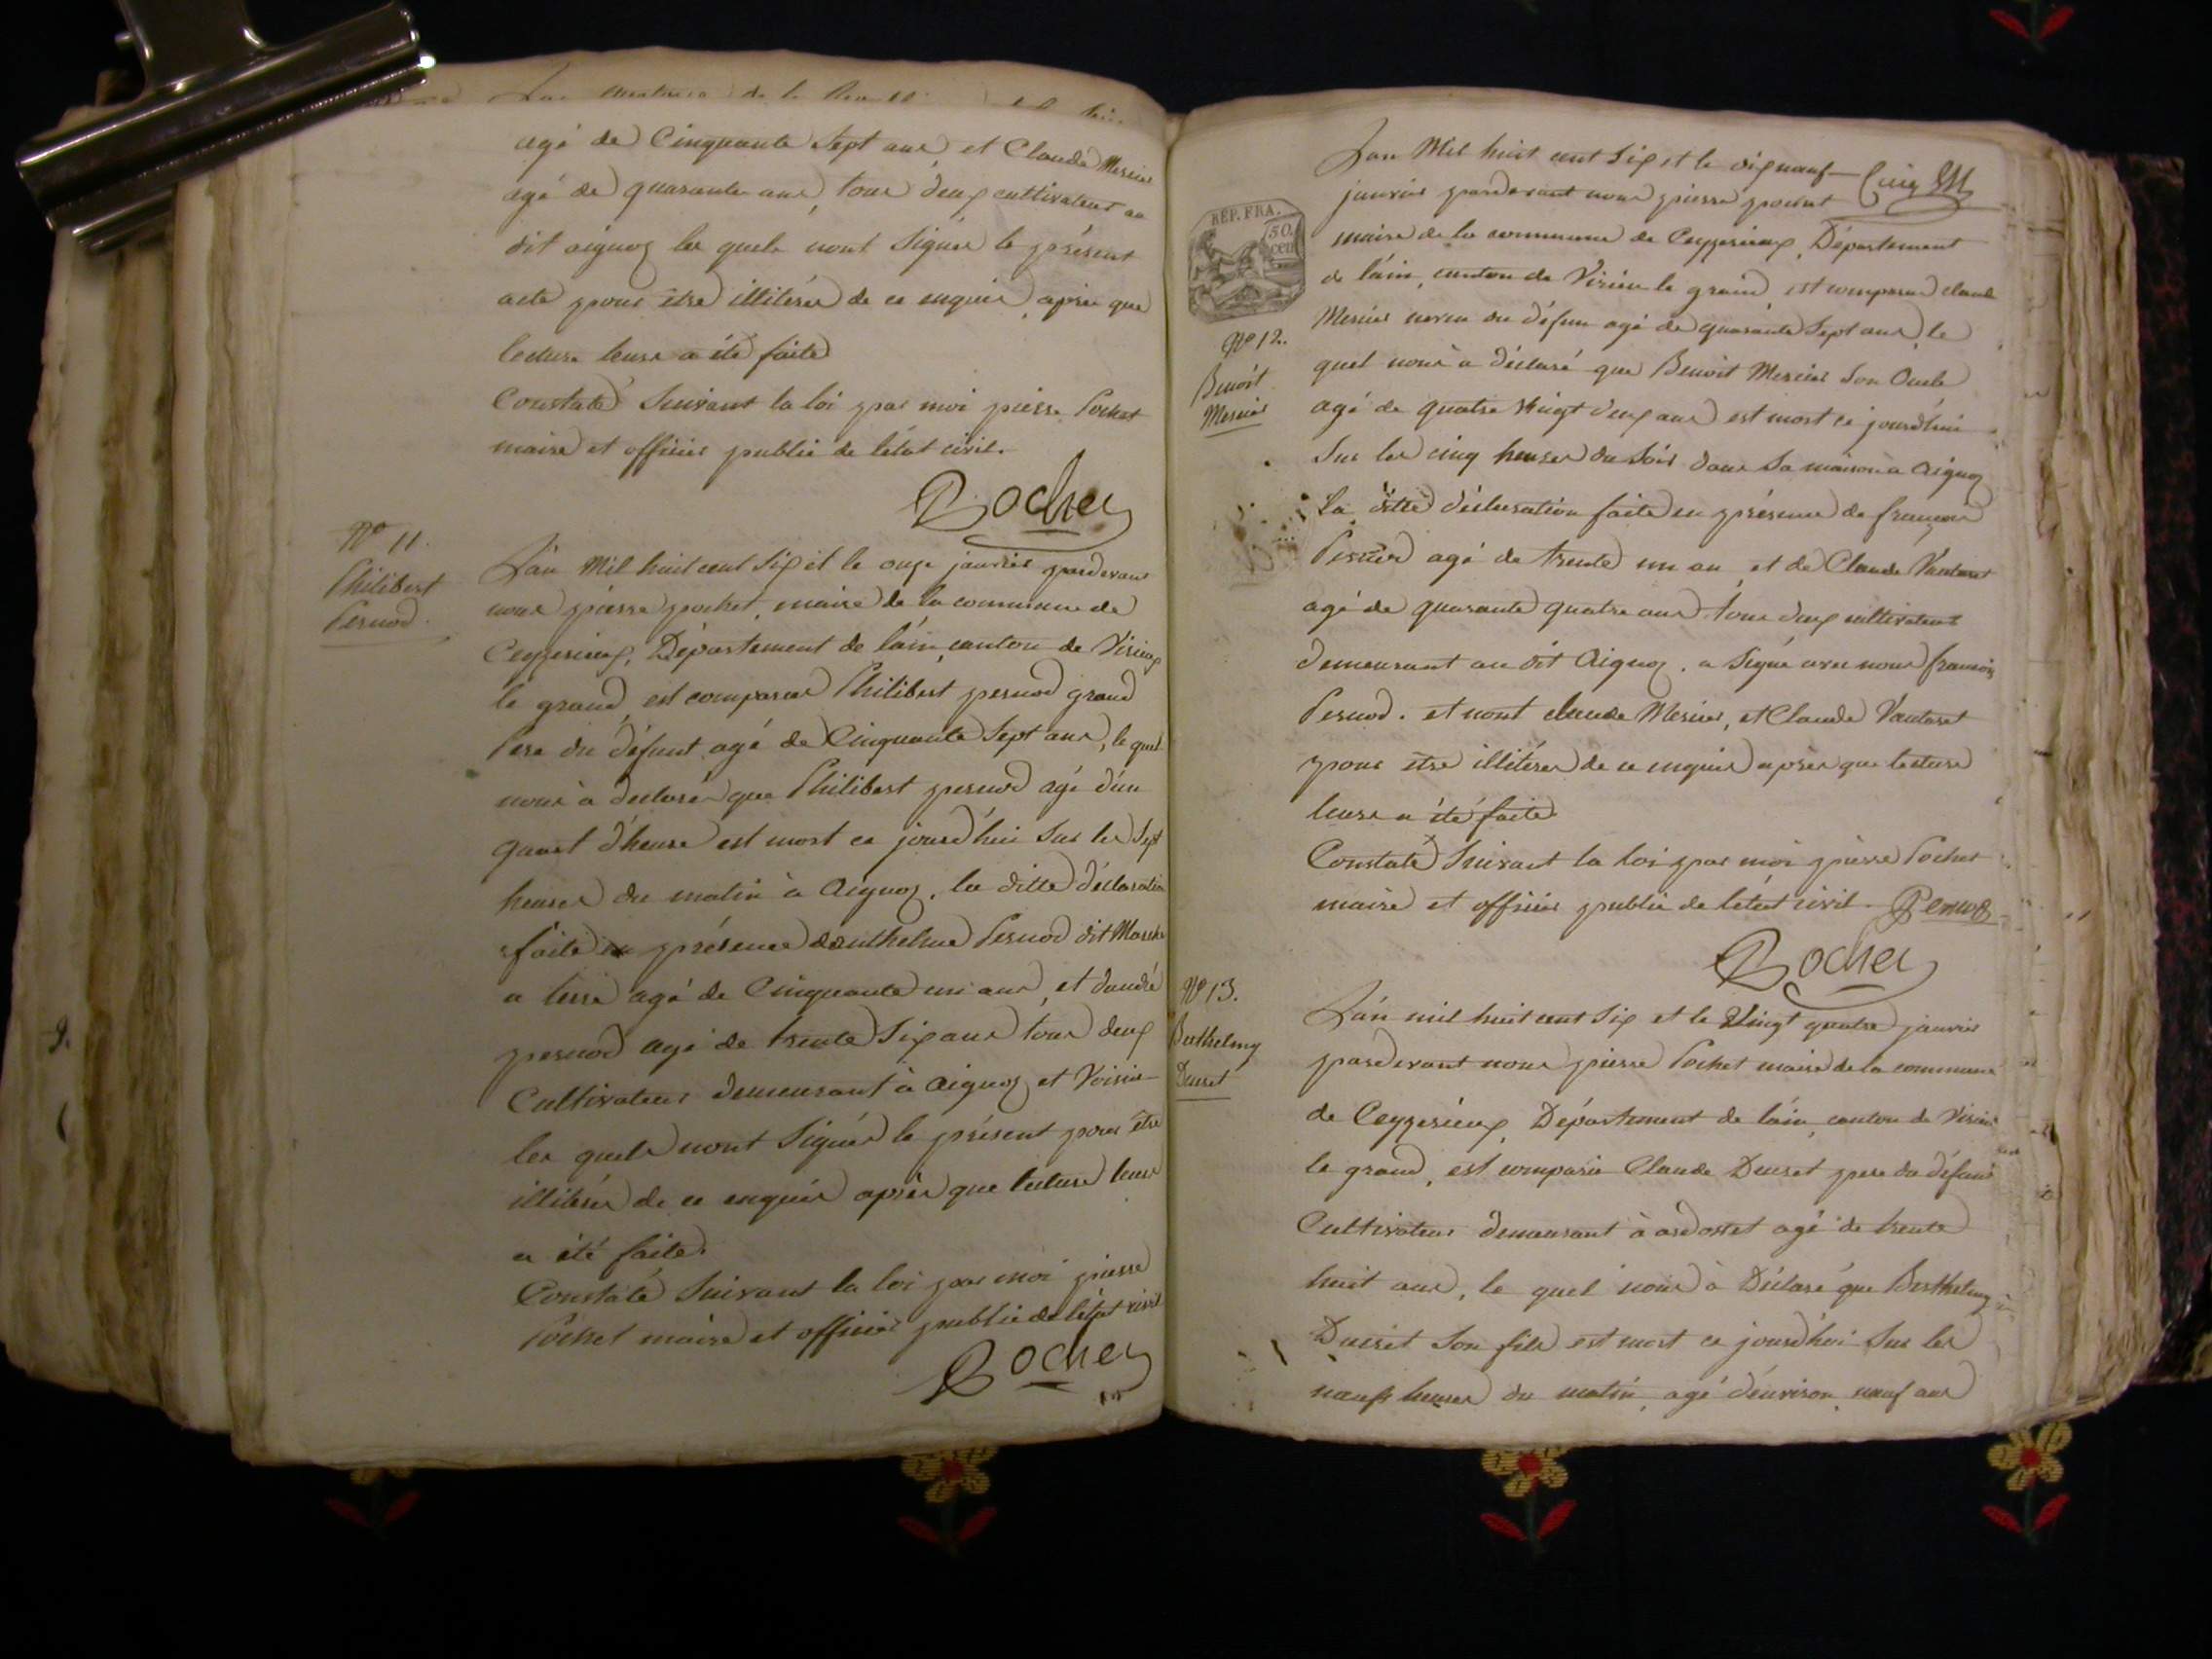 agé de Cinquante Sept ans et Claude Mercier
agé de quarante ans, tous deux cultivateur au
dit aignoz les quels nont Signés le présent
acte pour être illitérés de ce enquis, après que
lecture leurs a été faite
Constaté Suivant la loi par moi pierre Pochet
maire et officier public de l'état civil.
Pochet
N° 11.
Philibert
Pernod.
L'an Mil huit cent Six et le onze janvier pardevant
nous pierre pochet, maire de la commune de
Ceyzerieux, Département de l'ain, canton de Virieux
le grand est comparue Philibert pernod grand
Pere du défunt agé de Cinquante Sept ans, le quel
nous à declarer que Philibert pernod agé d'un
quart d'heure est mort ce jourd'hui Sur les Sept
heures du matin à Aignoz, la ditte déclaration
faite en présence danthelme Pernod dit Marche
a terre agé de Cinquante un ans, et dandré
pernod agé de trente Six ans tous deux
Cultivateur demeurant à Aignoz et Voisin
les quels nont Signés le présent pour être
illitérés de ce enquis après que lecture leurs
a été faite.
Constaté Suivant la loi par moi pierre
Pochet maire et officier public de l'état civil
Pochet
L'an Mil huit cent Six et le dix neuf
janvier pardevant nous pierre pochet
REP. FRA.
50.
cen
maire de la commune de Ceyzerieux, Département
de l'ain, canton de Virieu le grand, est comparu claude
Mercier neveu du défun agé de quarante Sept ans, le
N° 12.
Benoit
Mercier
quel nous à déclaré que Benoit Mercier Son Oncle
agé de quatre Vingt deux ans est mort ce jourd'hui
Sur les cinq heures du Soir dans Sa maison a Aignoz
La ditte déclaration faite en présence de françois
Pernod agé de trente un an, et de Claude Vautaret
agé de quarante quatre ans tous deux cultivateur
demeurant au dit Aignoz. a Signé avec nous francois
Pernod. et nont claude Mercier, et Claude Vautaret
pour être illitérés de ce enquis après que lecture
leurs a été faite
Constaté Suivant la loi par moi pierre Pochet
maire et officier public de l'état civil. Pernod
Pochet
N° 13.
Berthelmy
Ducret
L'an mil huit cent Six et le Vingt quatre janvier
pardevant nous pierre Pochet maire de la commune
de Ceyzerieux, Département de l'ain, canton de Virieu
le grand, est comparu Claude Ducret pere du défunt
Cultivateur demeurant à ardostet agé de trente
huit ans, le quel nous à Déclaré que Berthelmy
Ducret Son fils est mort ce jourd'hui Sur les
neufs heures du matin, agé d'environ neuf ans